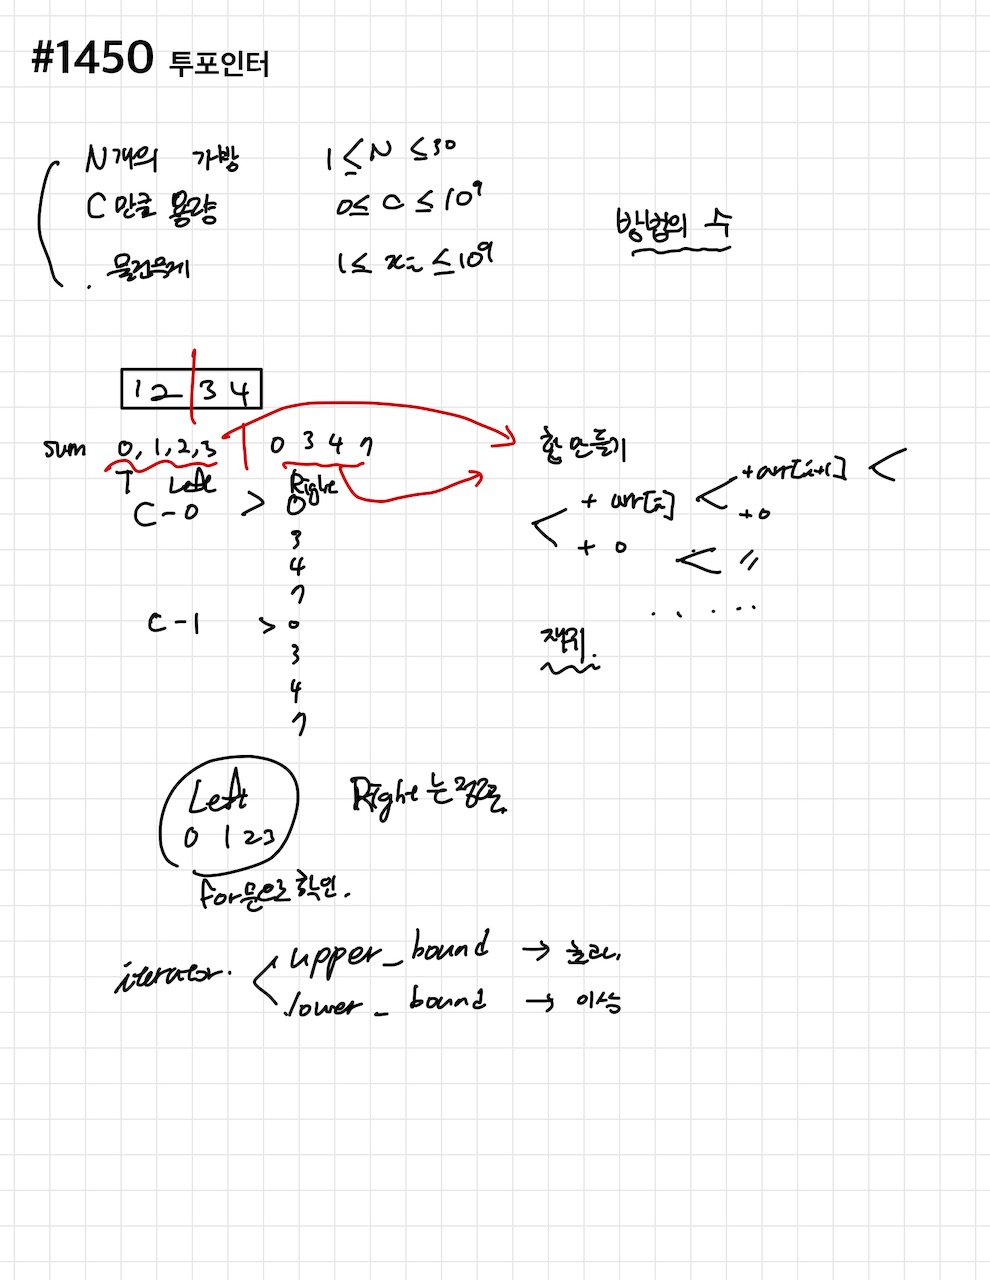 #1450 투포인터
N개의 가방 1 ≤ N ≤ 30
C 만큼 용량 0 ≤ C ≤ 10⁹
방법의 수
물건무게 1 ≤ xi ≤ 10⁹
1 2 3 4
sum 0, 1, 2, 3 0 3 4 7
합 만들기
Left Right
+ arr[i] + arr[i+1]
+ 0
C - 0 > 0
+ 0 < 〃
3
4
7
. . . . .
C - 1 > 0
재귀.
3
4
7
Left Right는 정렬
0 1 2 3
for문으로 확인.
iterator. upper_bound → 초과.
lower_bound → 이상